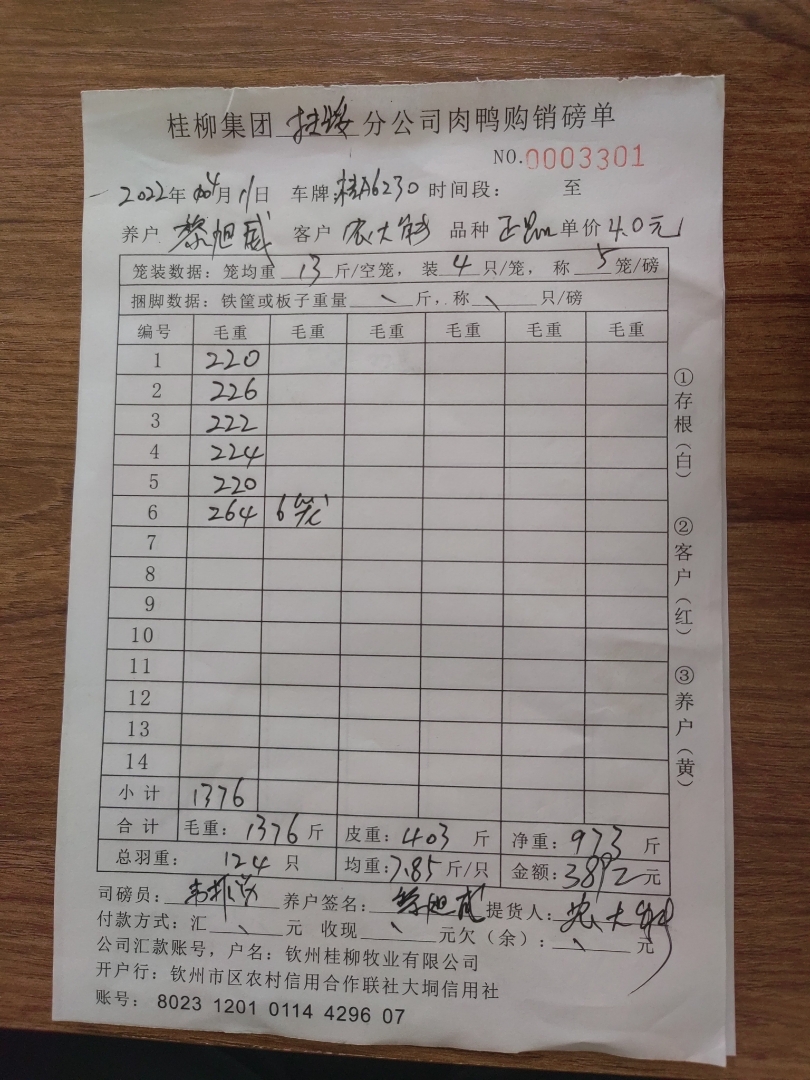 桂柳集团 扶绥 分公司肉鸭购销磅单
NO.0003301
2022年 04月 11日 车牌: 桂A6230 时间段: 至
养户 黎旭威 客户 农大 品种 正 单价 4.0元
笼装数据: 笼均重 13 斤/空笼, 装 4 只/笼, 称 5 笼/磅
捆脚数据: 铁筐或板子重量 \ 斤, 称 \ 只/磅
编号 毛重 毛重 毛重 毛重 毛重 毛重
1 220
2 226
3 222
4 224
5 220
6 264 6笼
7
8
9
10
11
12
13
14
小计 1376
合计 毛重: 1376 斤 皮重: 403 斤 净重: 973 斤
总羽重: 124 只 均重: 7.85 斤/只 金额: 3892 元
司磅员: 养户签名: 黎旭威 提货人: 农大
付款方式: 汇 \ 元 收现 \ 元欠(余): \ 元
公司汇款账号, 户名: 钦州桂柳牧业有限公司
开户行: 钦州市区农村信用合作联社大垌信用社
账号: 8023 1201 0114 4296 07
①存根(白)
②客户(红)
③养户(黄)